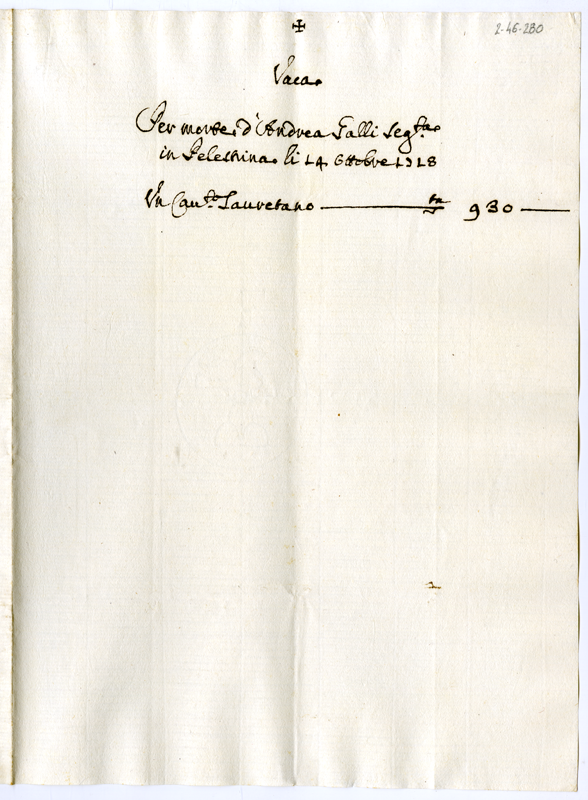 ✠
2-46-280
Vaca
Per morte d'Andrea Galli segta
in Pelestrina li 14 Ottobre 1718
Un Cauto Lauretano 930